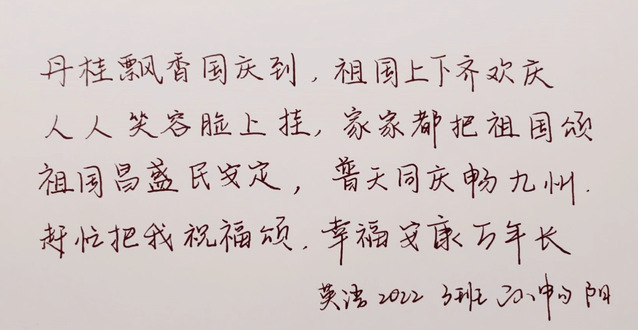 丹桂飘香国庆到，祖国上下齐欢庆
人人笑容脸上挂，家家都把祖国颂
祖国昌盛民安定，普天同庆畅九州.
赶忙把我祝福颂.幸福安康万年长
英语2022 3班 阳